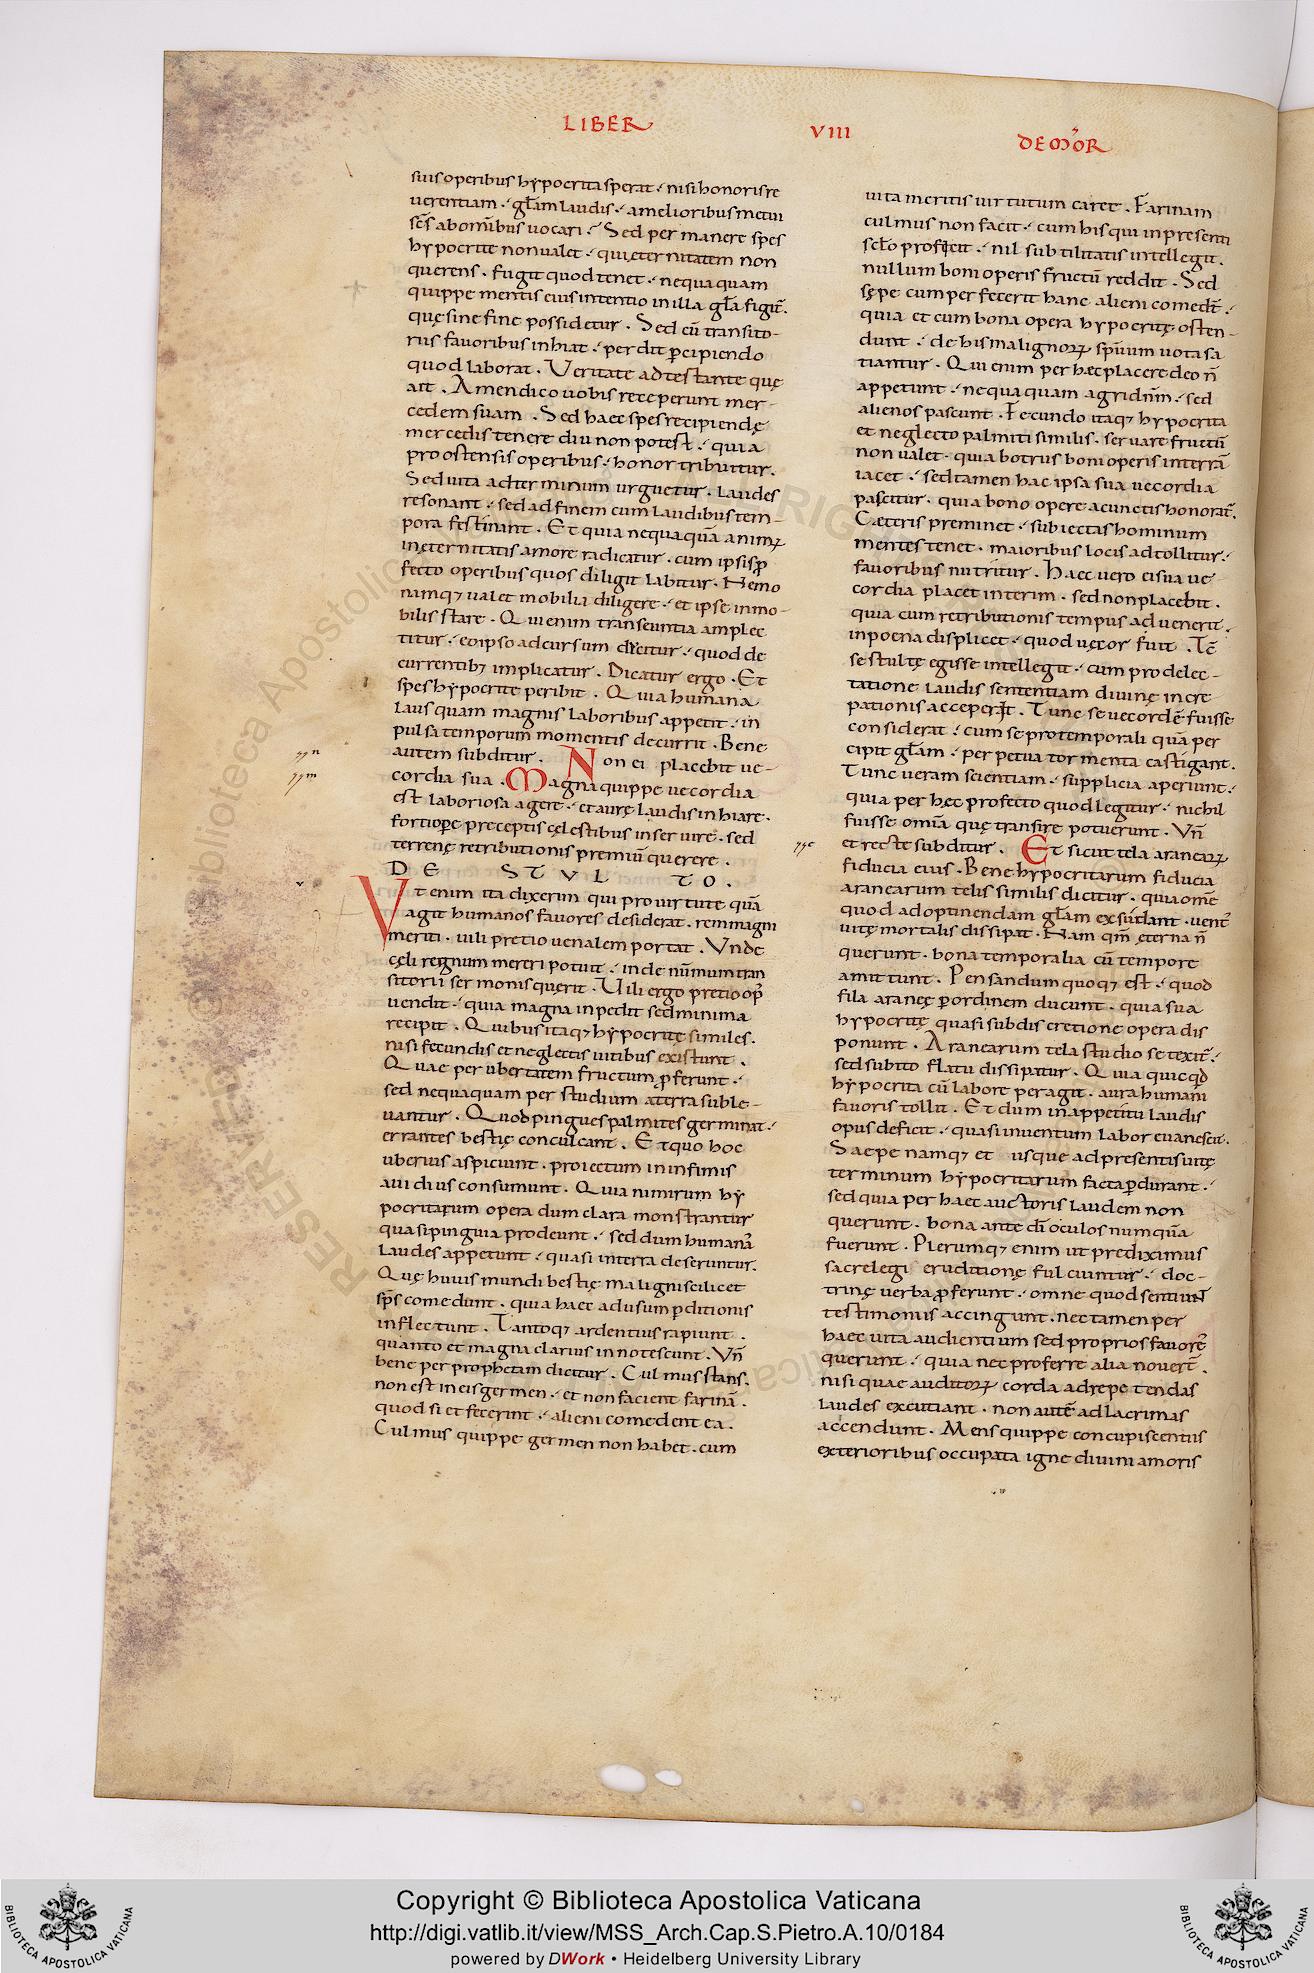 LIBER VIII DEMOR
suis operibus hypocrita sperat ; nisi honoris re
uerentiam ; gl̄am laudis ; a melioribus metui
sc̄s ab omnibus uocari ; Sed permanere spes
hypocritę non ualet ; qui ęternitatem non
querens . fugit quod tenet ; nequaquam
quippe mentis eius intentio in illa gl̄a figit̄ .
quę sine fine possidetur . Sed cū transito-
riis favoribus inhiat ; perdit p̄cipiendo
quod laborat . Veritate adtestante quę
ait . Amen dico uobis receperunt mer-
cedem suam . Sed haec spes recipiendę
mercedis tenere diu non potest ; quia
pro ostensis operibus ; honor tribuitur .
Sed uita ad terminum urguetur . laudes
resonant ; sed ad finem cum laudibus tem-
pora festinant . Et quia nequaquā animꝝ
in ęternitatis amore radicatur . cum ipsis p̄
fecto operibus quos diligit labitur . Nemo
namq; ualet mobilia diligere ; et ipse inmo-
bilis stare . Qui enim transeuntia amplec
titur ; eo ipso ad cursum ducitur ; quod de
currentib; implicatur . Dicatur ergo . Et
spes hypocritę peribit . Quia humana
laus quam magnis laboribus appetit ; in
pulsa temporum momentis decurrit . Bene
autem subditur . Non ei placebit ue-
cordia sua . Magna quippe uecordia
est laboriosa agere ; et aurę laudis inhiare .
fortiope preceptis cęlestibus inseruire . sed
terrenę retributionis premiū querere .
DE STVLTO .
Vt enim ita dixerim qui pro uirtute quā
agit humanos favores desiderat . rem magni
meriti . uili pretio uenalem portat . Vnde
cęli regnum mereri potuit ; inde nūmum tran
sitorii sermonis quęrit . Vili ergo pretio op̄
uendit ; quia magna inpedit sed minima
recipit . Quibus itaq; hypocritę similes .
nisi fecundis et neglectis uitibus existunt .
Quae per ubertatem fructum p̄ferunt ;
sed nequaquam per studium a terra suble-
uantur . Quod pingues palmites germinat ;
errantes bestię conculcant . Et quo hoc
uberius aspiciunt . proiectum in infimis
auidius consumunt . Quia nimirum hy
pocritarum opera dum clara monstrantur
quasi pinguia prodeunt ; sed dum humanā
laudes appetunt ; quasi in terra deseruntur .
Quę huius mundi bestię maligni scilicet
sp̄s comedunt . quia haec ad usum p̄ditionis
inflectunt . Tantoq; ardentius rapiunt .
quanto et magna clarius innotescunt . Vn̄
bene per prophetam dicitur . Culmus stans .
non est in eis germen ; et non facient farinā .
quod si et fecerint ; alieni comedent ea .
Culmus quippe germen non habet . cum
uita meritis uirtutum caret . Farinam
culmus non facit ; cum his qui in presenti
scl̄o proficit ; nil subtilitatis intellegit .
nullum boni operis fructū reddit . Sed
sępe cum perfecerit hanc alieni comedt̄ ;
quia et cum bona opera hypocritę osten-
dunt ; de his malignoꝝ spirituum uota sa
tiantur . Qui enim per haec placere deo n̄
appetunt ; nequaquam agri dn̄m ; sed
alienos pascunt . Fecundo itaq; hypocrita
et neglecto palmiti similis . seruare fructū
non ualet . quia botrus boni operis in terrā
iacet ; sed tamen hac ipsa sua uecordia
pascitur . quia bono opere a cunctis honorat̄ .
Cęteris preminet ; subiectas hominum
mentes tenet . maioribus locis adtollitur ;
favoribus nutritur . Haec uero ei sua ue
cordia placet interim . sed non placebit .
quia cum retributionis tempus aduenerit .
in poena displicet ; quod uęcor fuit . Tc̄
se stultę egisse intellegit ; cum pro delec-
tatione laudis sententiam diuinę incre
pationis acceperit . Tunc se uecordē fuisse
considerat ; cum se pro temporali quā per
cipit gl̄am ; perpetua tormenta castigant .
Tunc ueram scientiam ; supplicia aperiunt ;
quia per hęc profecto quod legitur ; nichil
fuisse omīa quę transire potuerunt . Vn̄
et recte subditur . Et sicut tela araneaꝝ
fiducia eius . Bene hypocritarum fiducia
aranearum telis similis dicitur . quia omē
quod ad optinendam gl̄am exsudant . uent̄
uitę mortalis dissipat . Nam qm̄ ęterna n̄
querunt . bona temporalia cū tempore
amittunt . Pensandum quoq; est ; quod
fila araneę p̄ ordinem ducunt . quia sua
hypocritę quasi sub discretione opera dis
ponunt . Aranearum tela studio se texit̄ ;
sed subito flatu dissipatur . Quia quicqd
hypocrita cū labore peragit . aura humani
favoris tollit . Et dum in appetitu laudis
opus deficit ; quasi in uentum labor euanescit .
Saepe namq; et usque ad presentis uitę
terminum hypocritarum facta p̄durant ;
sed quia per haec auctoris laudem non
querunt . bona ante dī oculos numquā
fuerunt . Plerumq; enim ut prediximus
sacre legi eruditionę fulciuntur ; doc-
trinę uerba p̄ferunt ; omne quod sentiunt
testimoniis accingunt . nec tamen per
haec uita audientium sed proprios favorē
querunt ; quia nec proferre alia nouerē .
nisi quae auditoꝝ corda ad repetendas
laudes excutiant . non autē ad lacrimas
accendunt . Mens quippe concupiscentiis
exterioribus occupata igne diuini amoris
Copyright © Biblioteca Apostolica Vaticana
http://digi.vatlib.it/view/MSS_Arch.Cap.S.Pietro.A.10/0184
powered by DWork • Heidelberg University Library
BIBLIOTECA APOSTOLICA VATICANA
BIBLIOTECA APOSTOLICA VATICANA